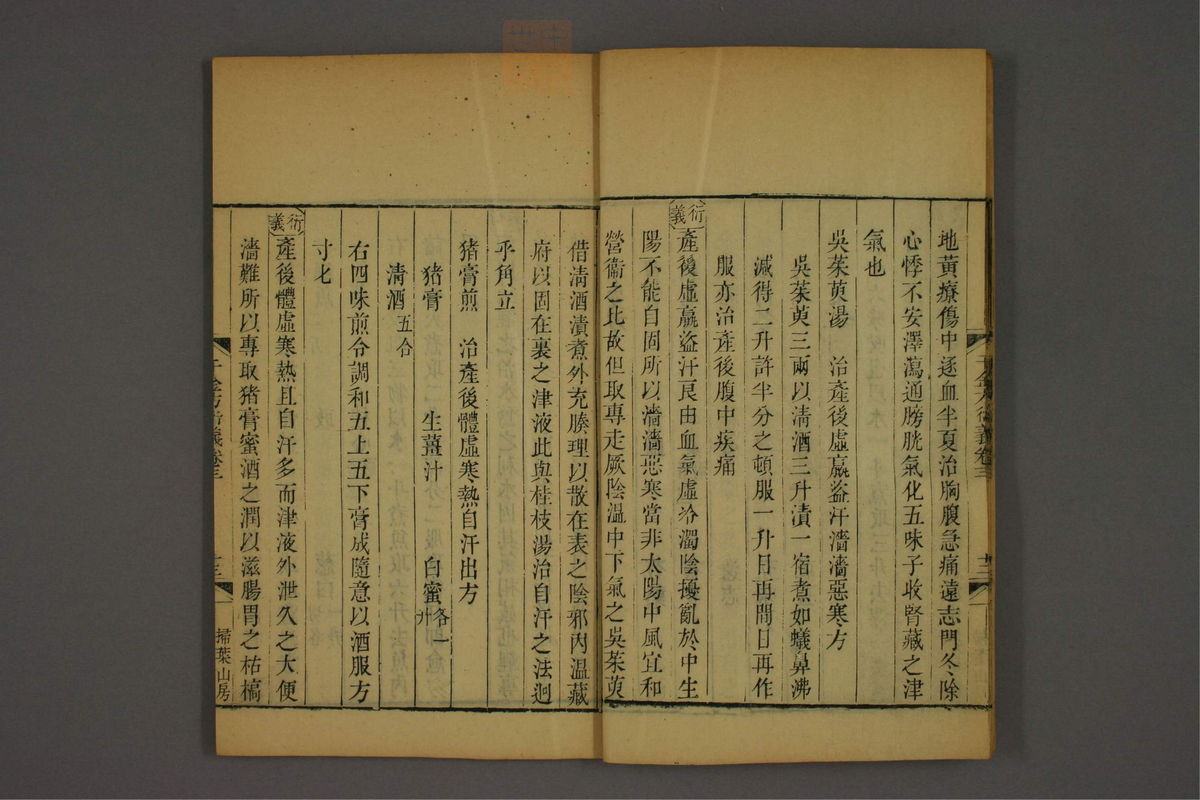 地黃療傷中逐血半夏治胸腹急痛遠志門冬除
心悸不安澤瀉通膀胱氣化五味子收腎藏之津
氣也
吳茱萸湯　治產後虛羸盜汗濇濇惡寒方
吳茱萸三兩以淸酒三升漬一宿煮如蟻鼻沸
減得二升許半分之頓服一升日再間日再作
服亦治產後腹中疾痛
衍義 產後虛羸盜汗艮由血氣虛冷濁陰擾亂於中生
陽不能自固所以濇濇惡寒當非太陽中風宜和
營衞之比故但取專走厥陰溫中下氣之吳茱萸
借淸酒漬煮外充腠理以散在表之陰邪內溫藏
府以固在裏之津液此與桂枝湯治自汗之法迥
乎角立
猪膏煎　治產後體虛寒熱自汗出方
猪膏　生薑汁　白蜜各一升
淸酒五合
右四味煎令調和五上五下膏成隨意以酒服方
寸匕
衍義 產後體虛寒熱且自汗多而津液外泄久之大便
濇難所以專取猪膏蜜酒之潤以滋腸胃之枯槁
千金方衍義卷三
十三
掃葉山房